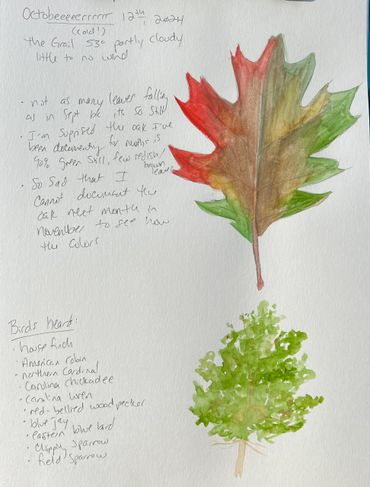 Octobeeeeerrrrrr 12th, 2024
(cold!)
the Grail 53° partly cloudy
little to no wind
• not as many leaves falling
as in Sept bc its so still
• I'm suprised the oak I've
been documenting for months is
90% green still, few redish/
brown
leaves
• So sad that I
cannot document the
oak next month in
November to see how
the colors
Birds heard:
• house finch
• American robin
• northern Cardinal
• Carolina chickadee
• carolina wren
• red-bellied woodpecker
• blue jay
• eastern blue bird
• chippy sparrow
• field sparrow